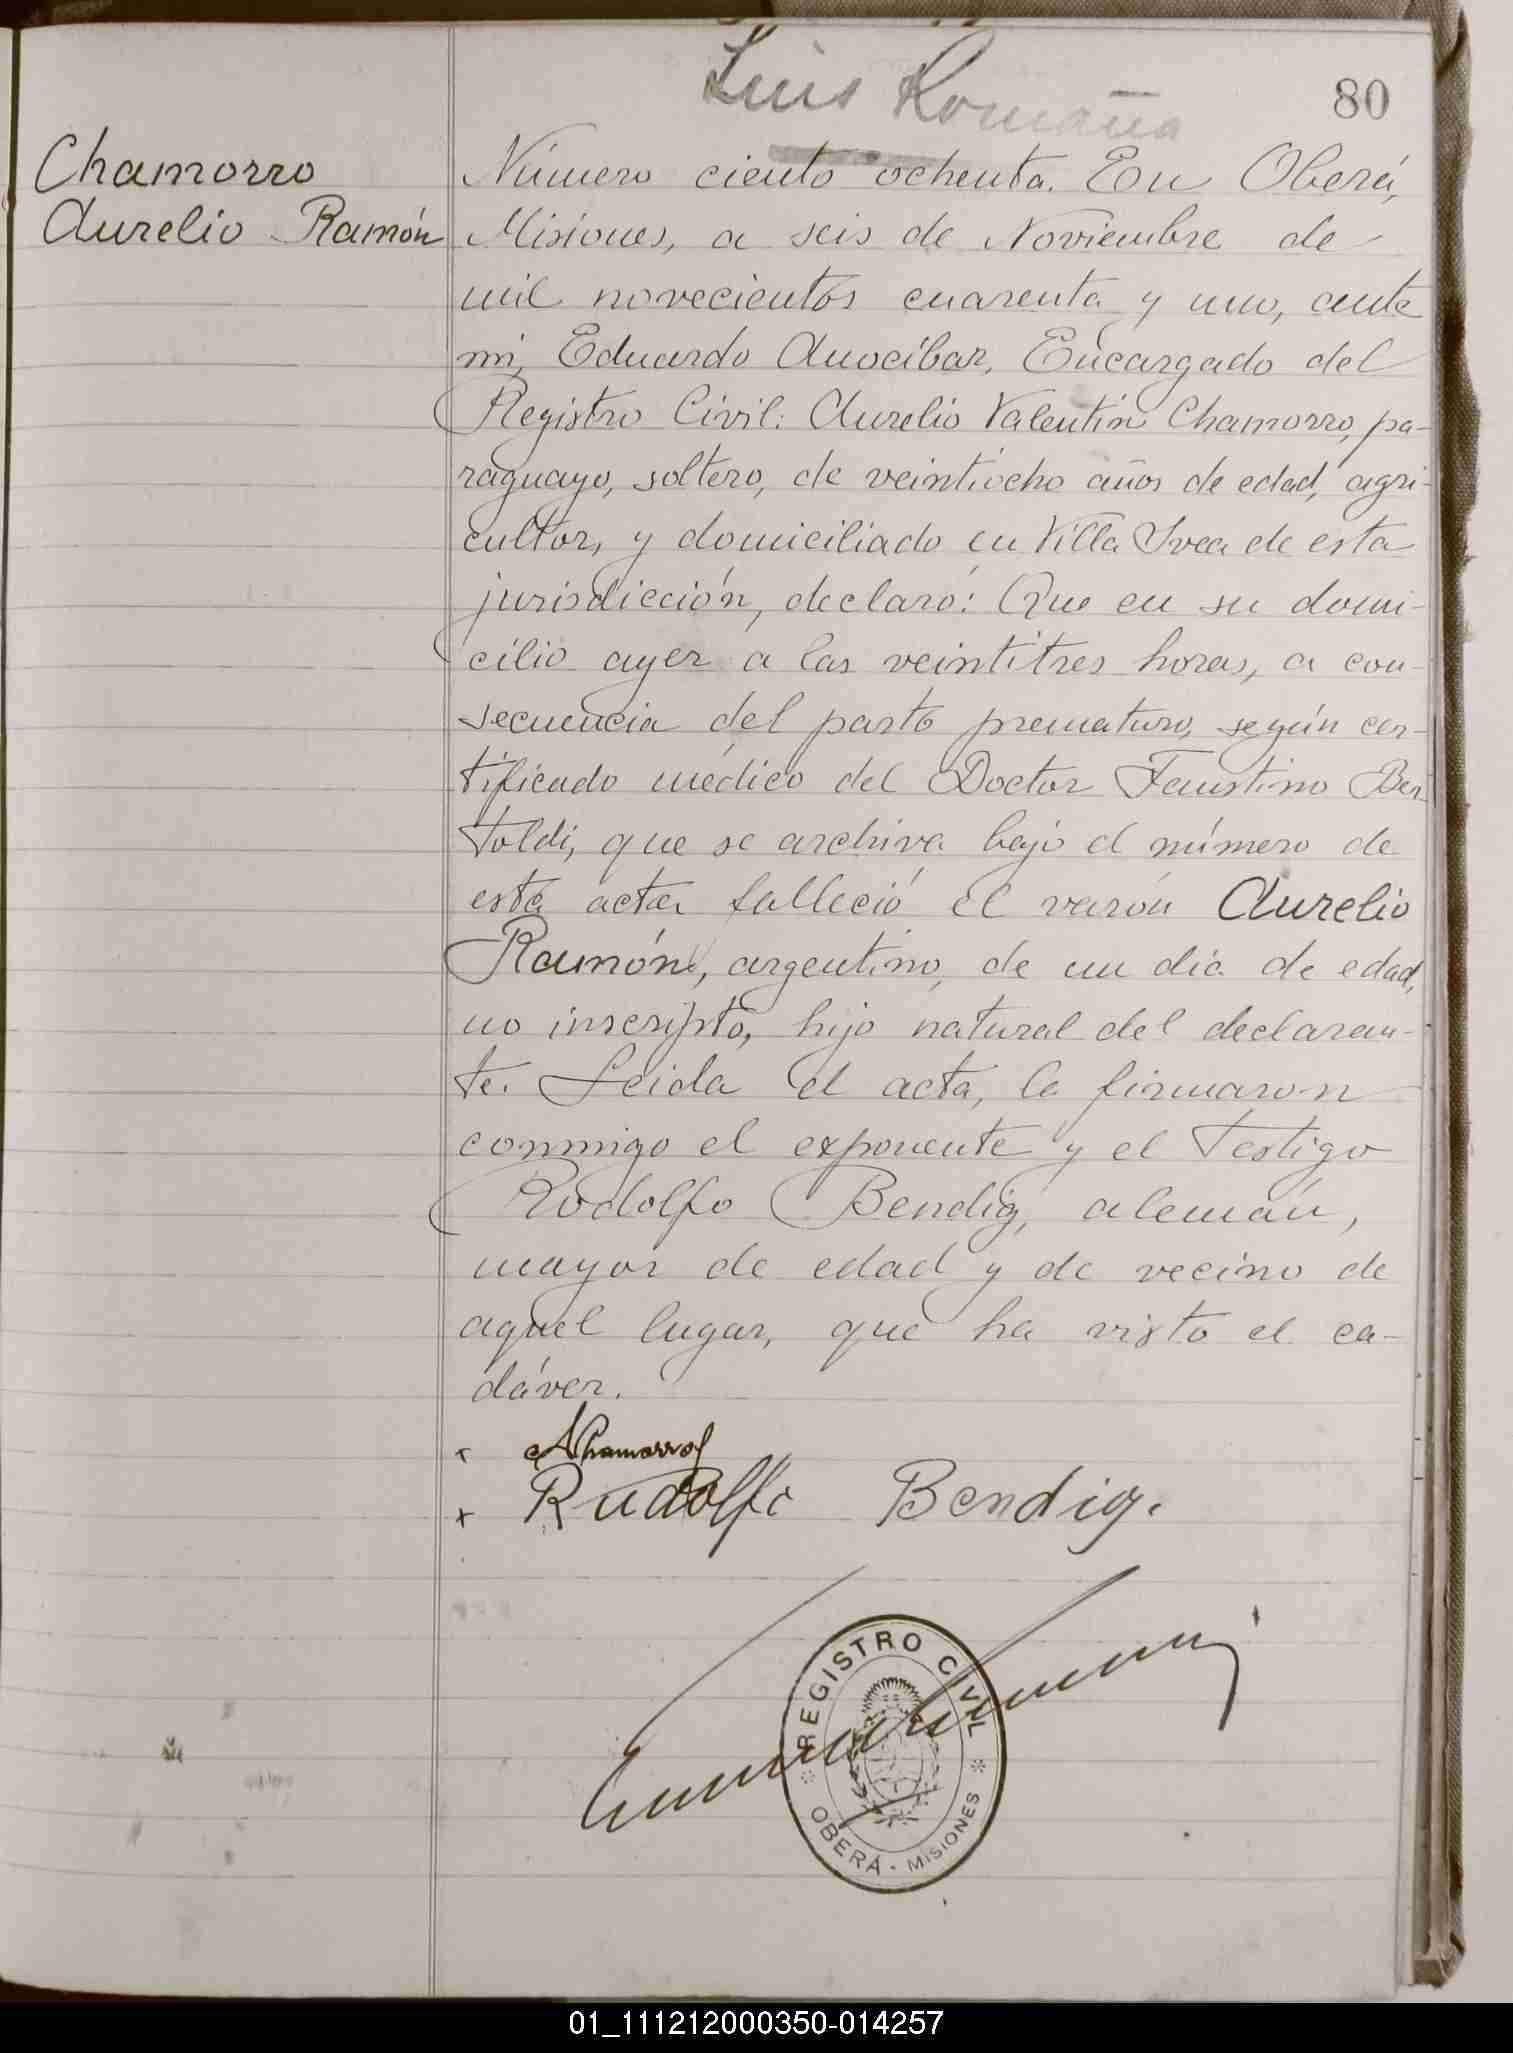 Luis Romaña
80
Chamorro
Aurelio Ramón
Número ciento ochenta. En Oberá,
Misiones, a seis de Noviembre de
mil novecientos cuarenta y uno, ante
mi, Eduardo Anocibar, Encargado del
Registro Civil: Aurelio Valentin Chamorro, pa-
raguayo, soltero, de veintiocho años de edad, agri-
cultor, y domiciliado en Villa Svea de esta
jurisdicción, declaró: Que en su domi-
cilio ayer a las veintitres horas, a con-
secuencia del parto prematuro, según cer-
tificado médico del Doctor Faustino Ber
toldi, que se archiva bajo el número de
esta acta falleció el varón Aurelio
Ramón, argentino, de un día de edad,
no inscripto, hijo natural del declaran-
te. Leida el acta, la firmaron
conmigo el exponente y el testigo
Rodolfo Bendig, alemán,
mayor de edad y de vecino de
aquel lugar, que ha visto el ca-
dáver.
x AChamorro
x Rudolfo Bendig.
REGISTRO CIVIL
OBERÁ - MISIONES
01_111212000350-014257